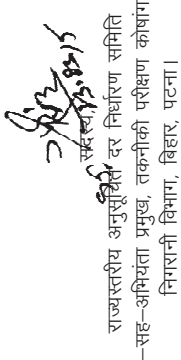 सदस्य,
राज्यस्तरीय अनुसूचित दर निर्धारण समिति
–सह–अभियंता प्रमुख, तकनीकी परीक्षण कोषांग
निगरानी विभाग, बिहार, पटना।